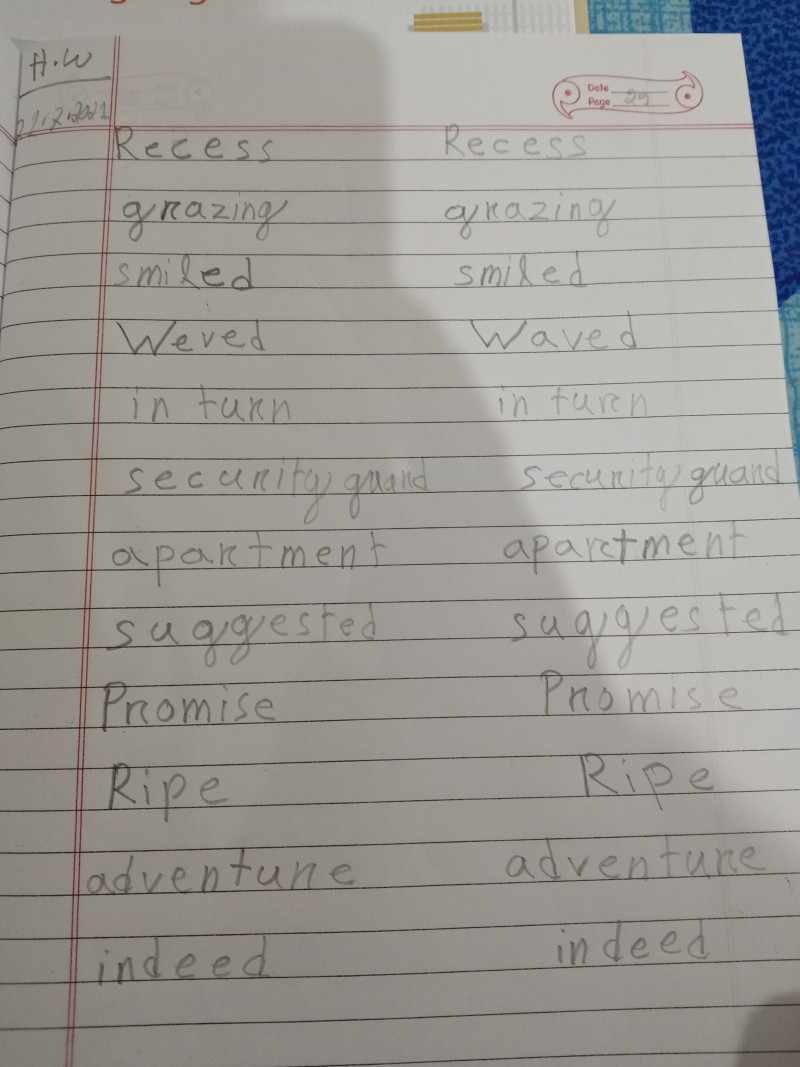 H.W
Date
21.7.2021
Page 29
Recess Recess
grazing grazing
smiled smiled
Weved Waved
in turn in turn
security guard security guard
apartment apartment
suggested suggested
Promise Promise
Ripe Ripe
adventure adventure
indeed indeed